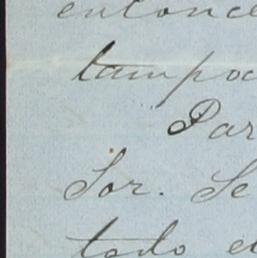 entonce
tampoc
Par
Sor. Se
tado e